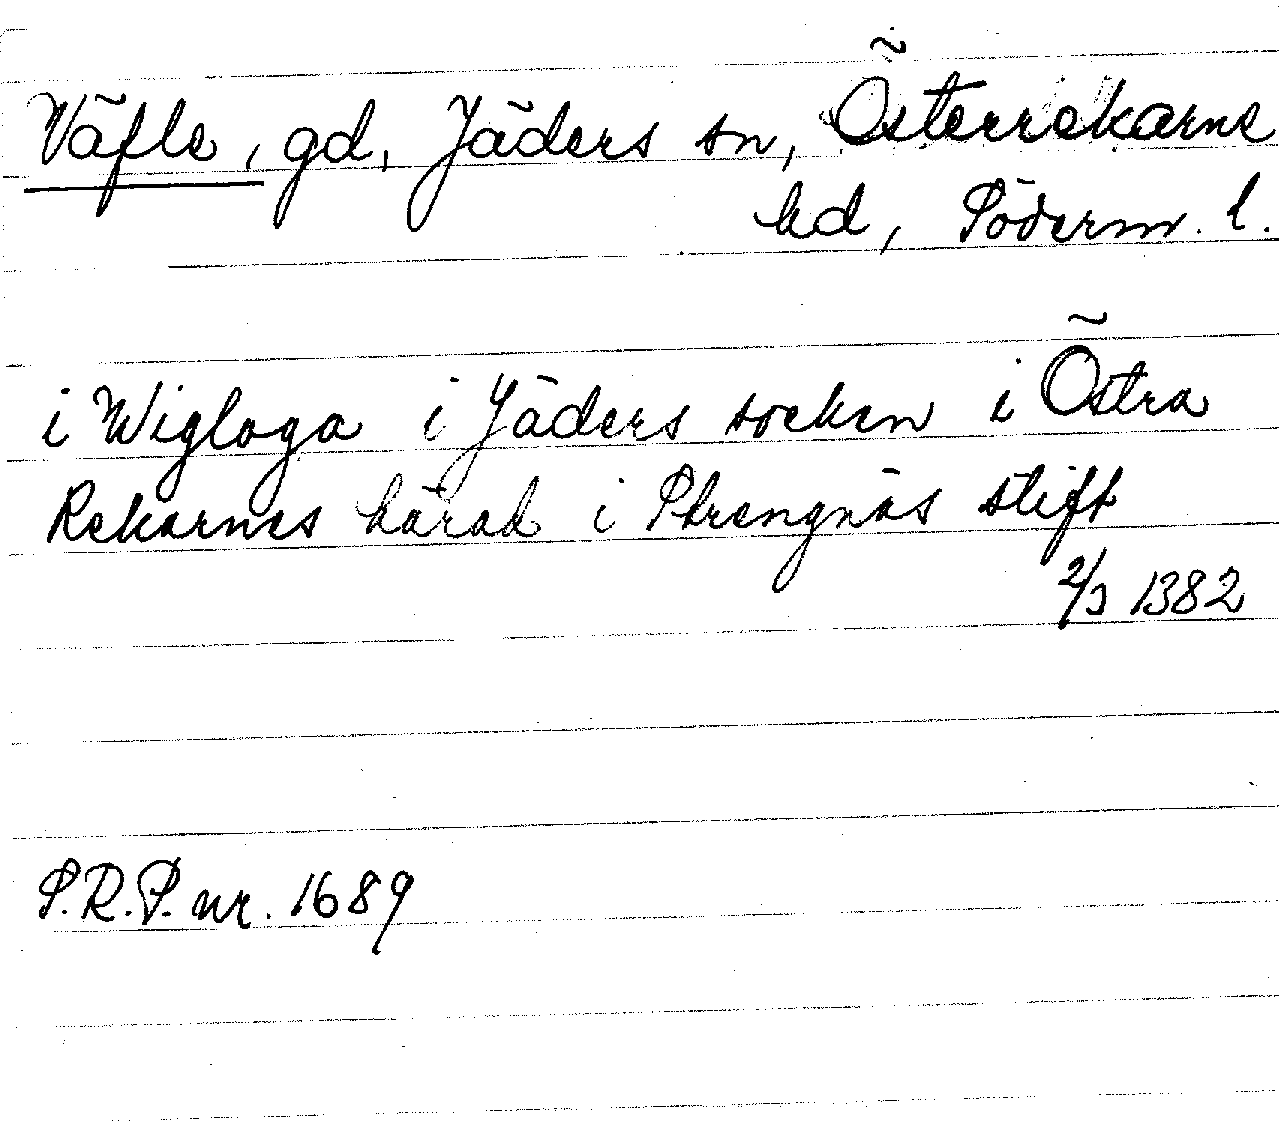 Väfle, gd, Jäders sn, Österrekarne
hd, Söderm. l.
i Wigloga i Jäders socken i Östra
Rekarnes härad i Strengnäs stift
2/3 1382
S.R.P. nr. 1689